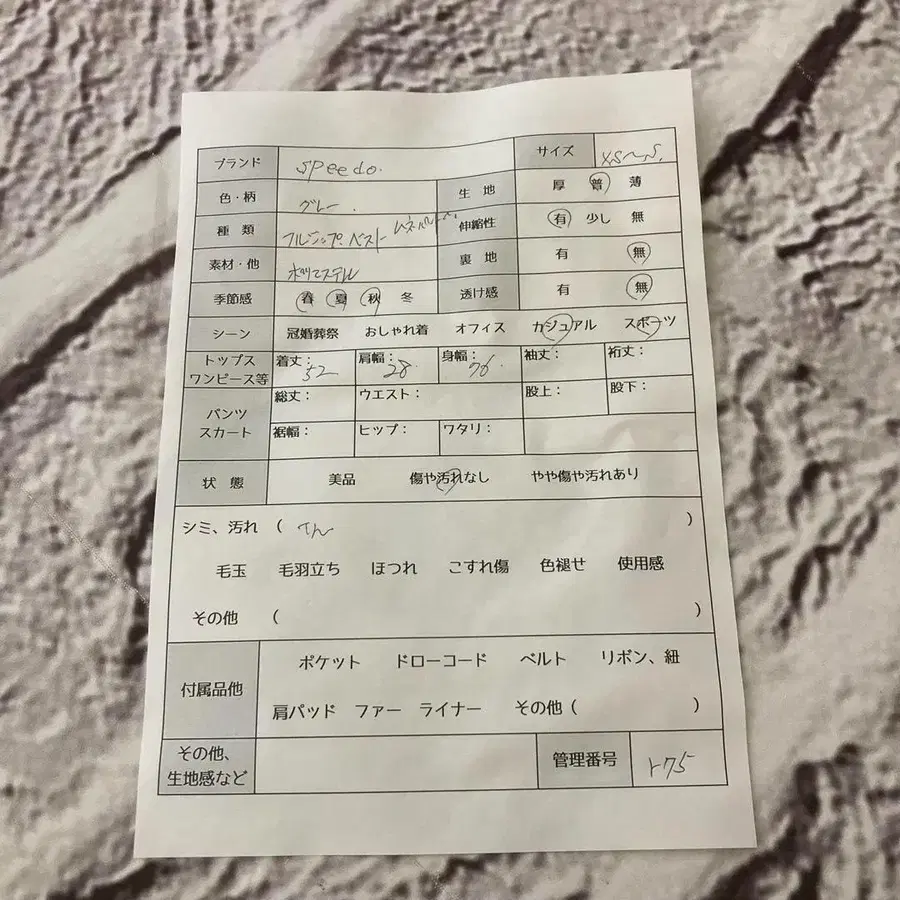 ブランド speedo. サイズ XS〜S.
色・柄 グレー. 生地 厚 普 薄
種類 フルジップ・ベスト 伸縮性 有 少し 無
素材・他 ポリエステル 裏地 有 無
季節感 春 夏 秋 冬 透け感 有 無
シーン 冠婚葬祭 おしゃれ着 オフィス カジュアル スポーツ
トップス ワンピース等 着丈: 52 肩幅: 28 身幅: 裄丈: 袖丈:
パンツ スカート 総丈: ウエスト: 股上: 股下:
裾幅: ヒップ: ワタリ:
状態 美品 傷や汚れなし やや傷や汚れあり
シミ、汚れ ( )
毛玉 毛羽立ち ほつれ こすれ傷 色褪せ 使用感
その他 ( )
付属品他 ポケット ドローコード ベルト リボン、紐
肩パッド ファー ライナー その他 ( )
その他、生地感など 管理番号 r75